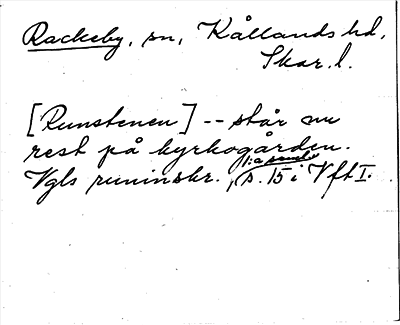 Rackeby, sn, Kållands hd,
Skar. l.
[Runstenen] -- står nu
rest på kyrkogården.
1:a saml.
Vgls runinskr., s. 15 i Vft I.